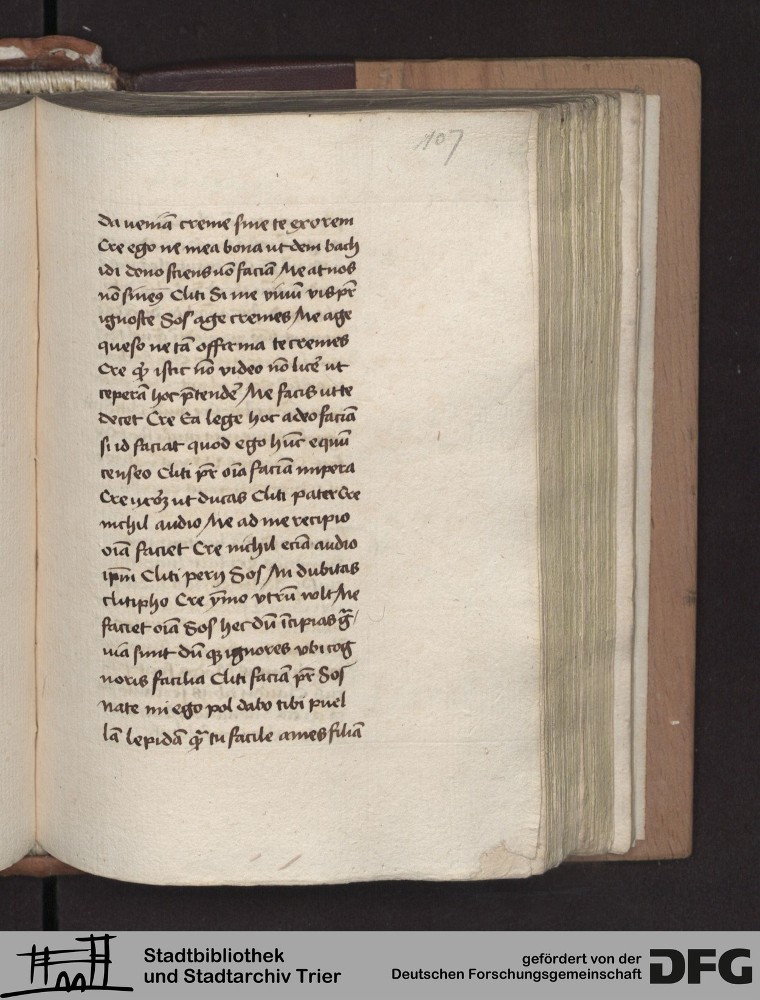 107
da ueniā creme sine te exorem
Cre ego ne mea bona ut dem bach
idi dono sciens nō faciā Me at nos
nō sinemꝰ Cliti Si me viuū vis pr̄
ignosce Sos age cremes Me age
queso ne tā offirma te cremes
Cre qͥd istic nō video nō licꝫ ut
ceperā hoc p̄tendeꝫ Me facis ut te
decet Cre Ea lege hoc adeo faciā
si id faciat quod ego hūc equū
censeo Cliti pr̄ oīa faciā impera
Cre uxorꝫ ut ducas Cliti pater Cre
nichil audio Me ad me recipio
oīa faciet Cre nichil eciā audio
ip̄m Cliti perij Sos An dubitas
clitipho Cre ymo vtrū volt Me
faciet oīa Sos hec dū īcipias gͣ
uia sunt dū qꝫ ignores vbi cog
noris facilia Cliti faciā pr̄ Sos
nate mi ego pol dabo tibi puel
lā lepidā qͣ̄ tu facile ames filiā
Stadtbibliothek
und Stadtarchiv Trier
gefördert von der
Deutschen Forschungsgemeinschaft
DFG